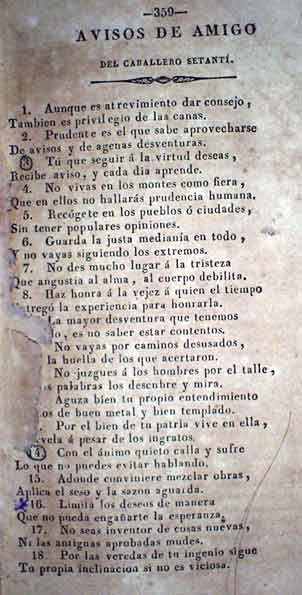 —359—
AVISOS DE AMIGO
DEL CABALLERO SETANTÍ.
1. Aunque es atrevimiento dar consejo,
Tambien es privilegio de las canas.
2. Prudente es el que sabe aprovecharse
De avisos y de agenas desventuras.
3 Tú que seguir á la virtud deseas,
Recibe aviso, y cada dia aprende.
4. No vivas en los montes como fiera,
Que en ellos no hallarás prudencia humana.
5. Recógete en los pueblos ó ciudades,
Sin tener populares opiniones.
6. Guarda la justa medianía en todo,
Y no vayas siguiendo los extremos.
7. No des mucho lugar á la tristeza
Que angustia al alma, al cuerpo debilita.
8. Haz honra á la vejez á quien el tiempo
tregó la experiencia para honrarla.
La mayor desventura que tenemos
do, es no saber estar contentos.
No vayas por caminos desusados,
la huella de los que acertaron.
No juzgues á los hombres por el talle,
s palabras los descubre y mira.
Aguza bien tu propio entendimiento
os de buen metal y bien templado.
Por el bien de tu patria vive en ella,
vela á pesar de los ingratos.
14 Con el ánimo quieto calla y sufre
Lo que no puedes evitar hablando.
15. Adonde conviniere mezclar obras,
Aplica el seso y la sazon aguarda.
16. Limita los deseos de manera
Que no pueda engañarte la esperanza.
17. No seas inventor de cosas nuevas,
Ni las antiguas aprobadas mudes.
18. Por las veredas de tu ingenio sigue
Tu propia inclinacion si no es viciosa.